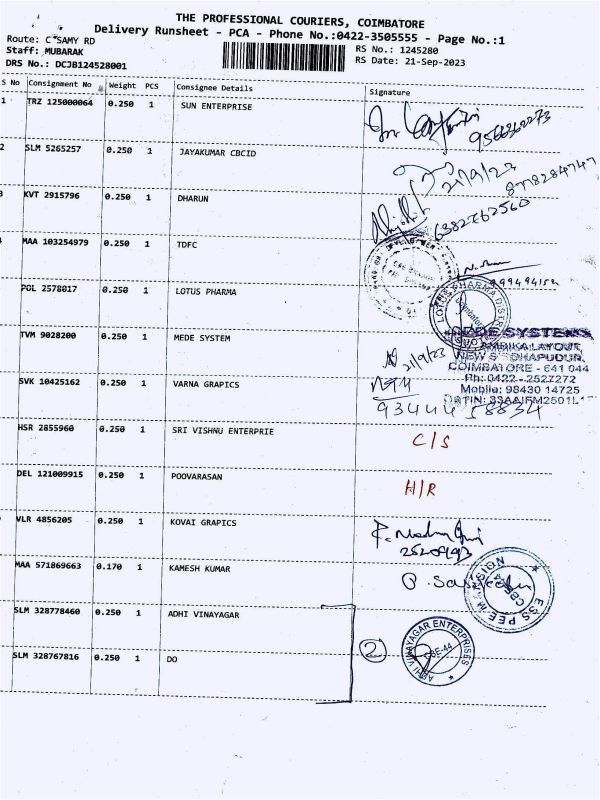 THE PROFESSIONAL COURIERS, COIMBATORE
Delivery Runsheet - PCA - Phone No.:0422-3505555 - Page No.:1
Route: C SAMY RD
RS No.: 1245280
Staff: MUBARAK
RS Date: 21-Sep-2023
DRS No.: DCJB124528001
S No Consignment No Weight PCS Consignee Details Signature
1 TRZ 125000064 0.250 1 SUN ENTERPRISE
2 SLM 5265257 0.250 1 JAYAKUMAR CBCID
21/9/23
8778284747
3 KVT 2915796 0.250 1 DHARUN
6382762560
4 MAA 103254979 0.250 1 TDFC
POL 2578017 0.250 1 LOTUS PHARMA
LOTUS PHARMA DISTRIBUTORS
TVM 9028200 0.250 1 MEDE SYSTEM
21/9/23
MEDE SYSTEMS
AMBIKA LAYOUT,
NEW S DHAPUDUR,
COIMBATORE - 641 044
Ph: 0422 - 2527272
Mobile: 98430 14725
SVK 10425162 0.250 1 VARNA GRAPICS
93444 58834
HSR 2855960 0.250 1 SRI VISHNU ENTERPRIE
C/S
DEL 121009915 0.250 1 POOVARASAN
H/R
VLR 4856205 0.250 1 KOVAI GRAPICS
MAA 571869663 0.170 1 KAMESH KUMAR
ESS PEE MISSION
SLM 328778460 0.250 1 ADHI VINAYAGAR
ADHI VINAYAGAR ENTERPRISES
CBE-44
2
SLM 328767816 0.250 1 DO